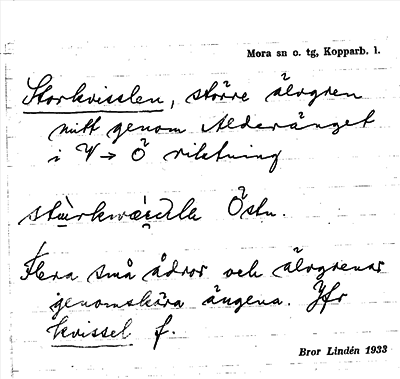 Mora sn o. tg, Kopparb. l.
Storkvisslen, större älvgren
mitt genom Alderänget
i V → Ö riktning
Östn.
Flera små ådror och älvgrenar
genomskära ängena. Jfr
kvissel f.
Bror Lindén 1933